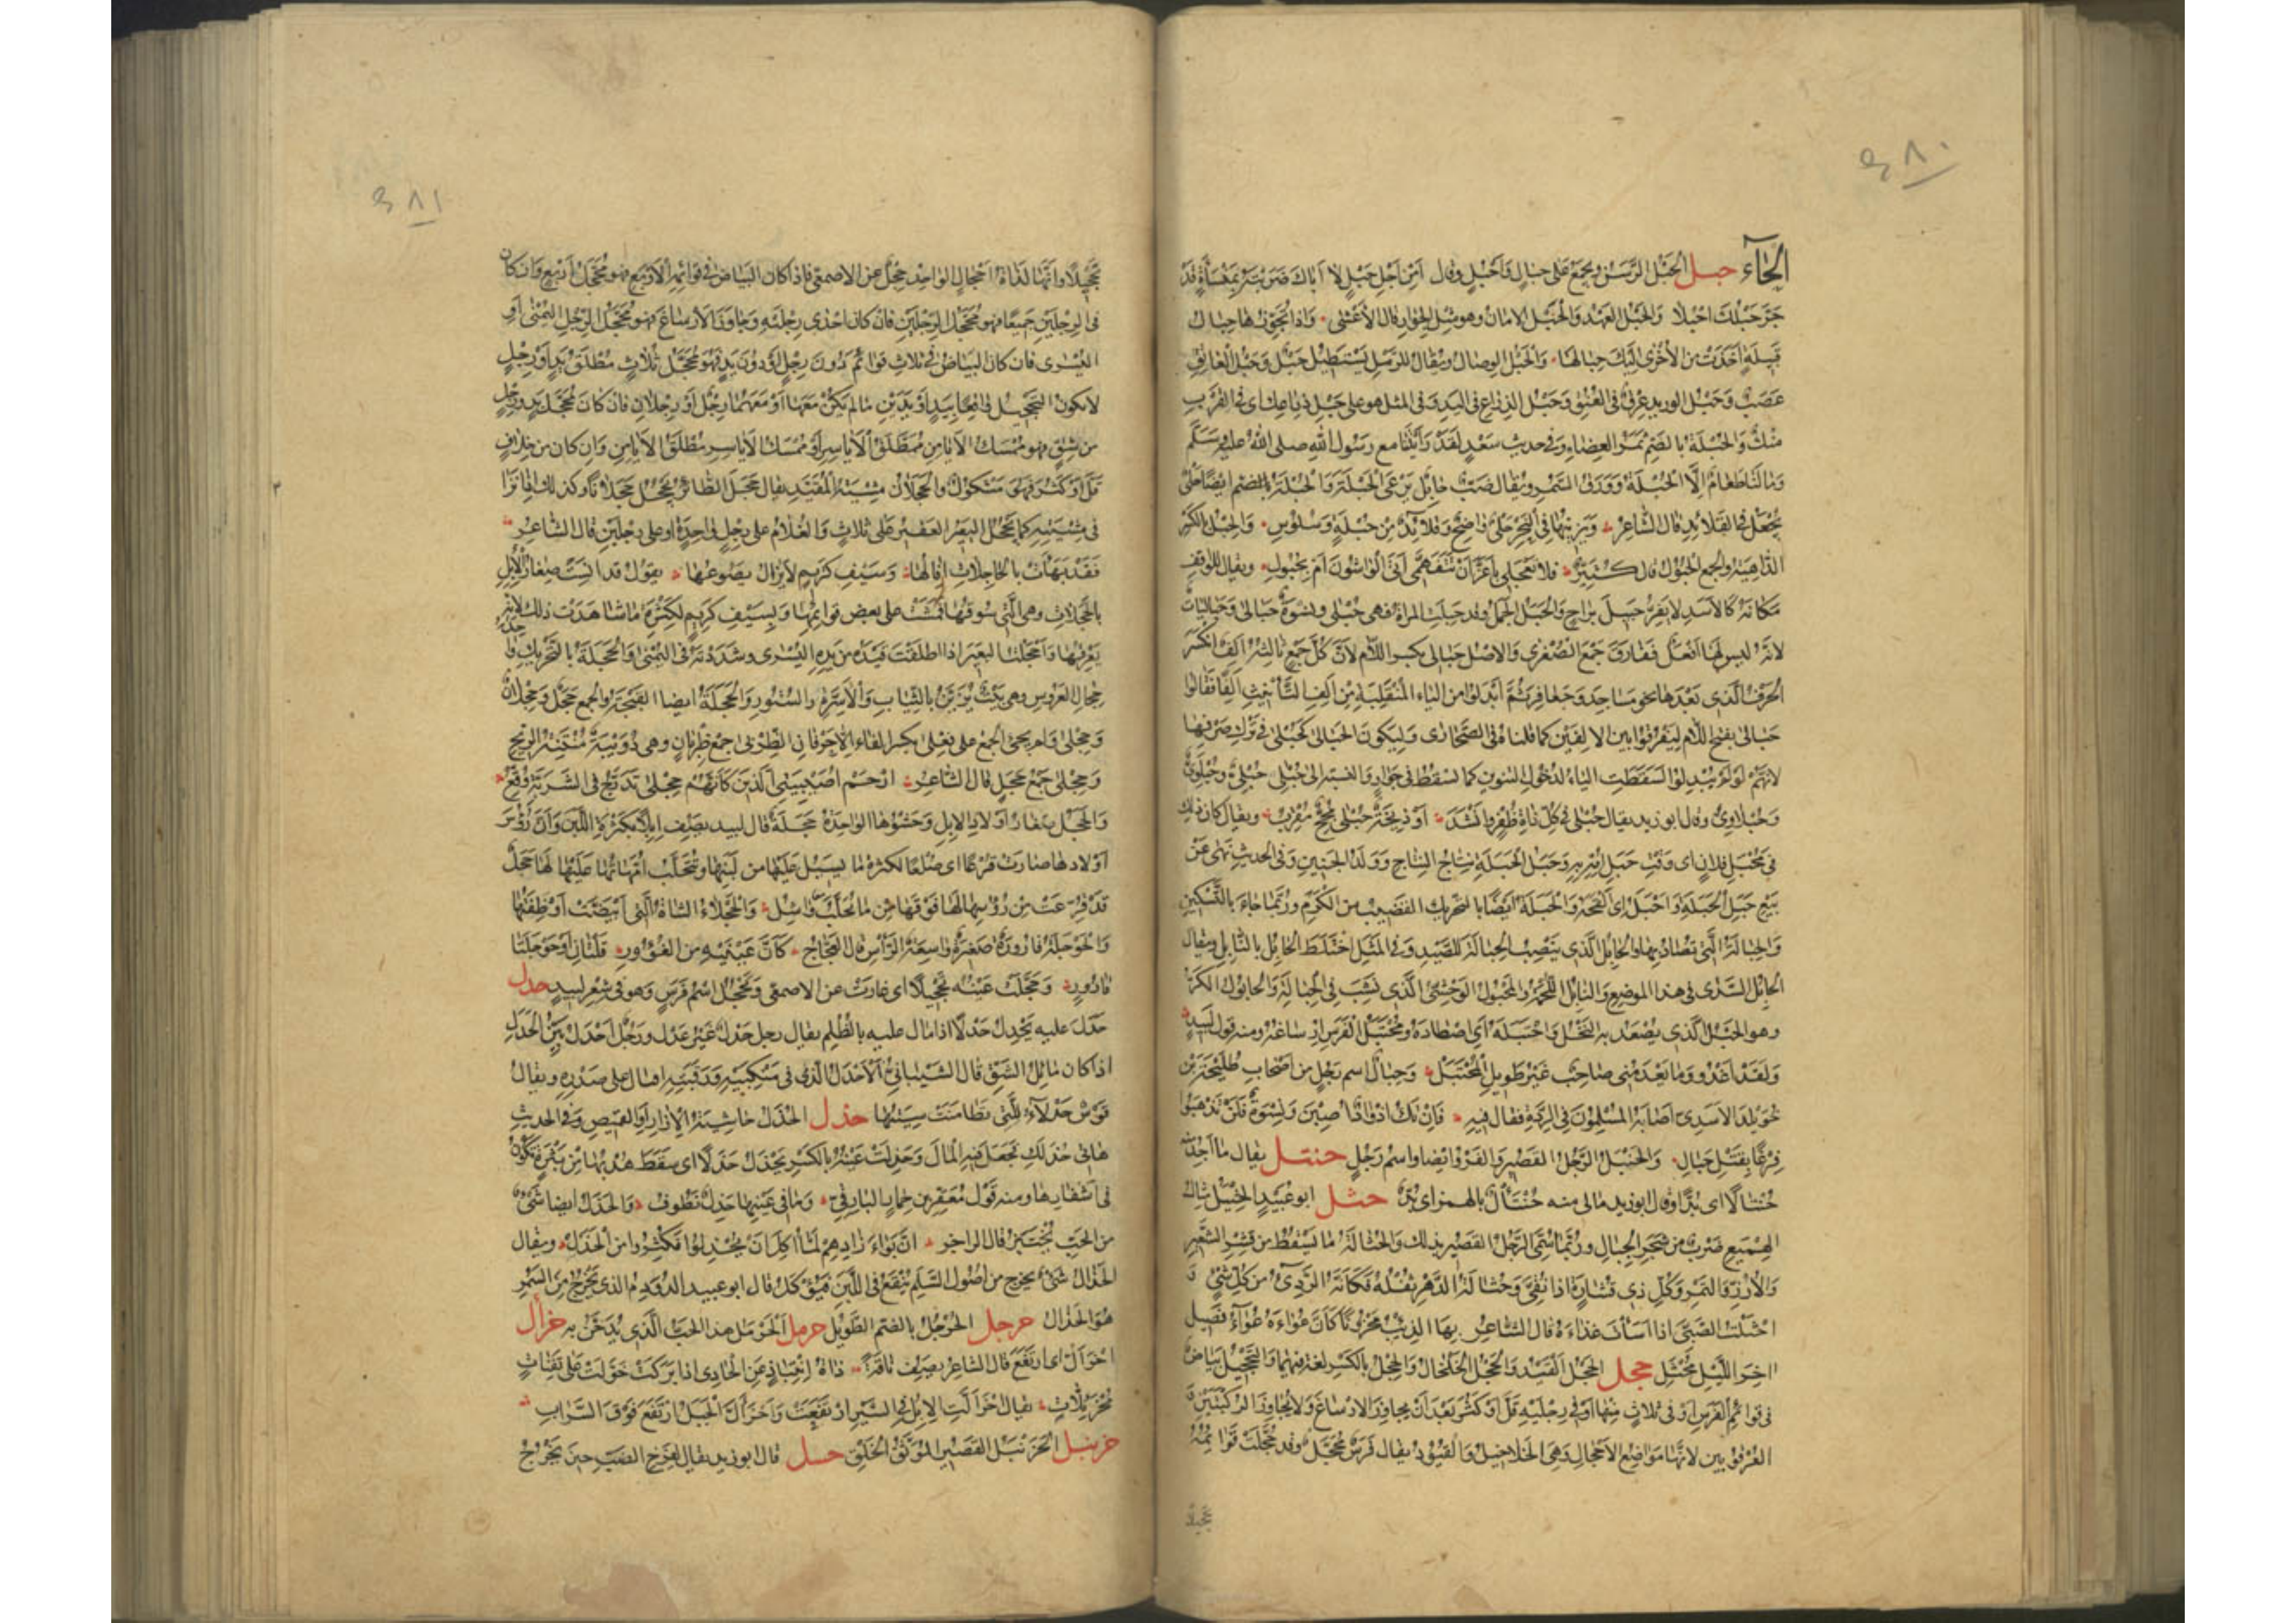 ٤٨٠
الحاء حبل الحَبْل الرَّسَن ويجمع على حبال وأحبل وقال أمن أجل حبل لا أباك ضربته بمنسأة قد
جر حبلك احبلا والحبل العهد والحبل الامان وهو مثل الجوار قال الاعشى واذا تجوزها حبال
قبيلة أخذت من الأخرى اليك حبالها والحبل الوصال ويقال للرمل يستطيل حبل وحبل العاتق
عصب وحبل الوريد عرق في العنق وحبل الذراع في اليد وفي المثل هو على حبل ذراعك اى في القرب
منك والحبلة بالضم ثمر العضاه وفي حديث سعد لقد رأيتنا مع رسول الله صلى الله عليه وسلم
ومالنا طعام إلا الحبلة وورق السمر ويقال ضب حابل يرعى الحبلة والحبلة بالضم ايضا حلى
يجعل في القلائد قال الشاعر ويزينها في النحر حلى واضح وقلائد من حبلة وسلوس والحبل بالكسر
الداهية والجمع الحبول قال كثير فلا تعجلى يا عز أن تتفهمى أبنصح أتى الواشون أم بحبول ويقال للواقف
مكانه كالاسد لا يفر حبيل براح والحبل الحمل وقد حبلت المرأة فهى حبلى ونسوة حبالى وحباليات
لانه ليس لها أفعل ففارق جمع الصغرى والاصل حبالى بكسر اللام لان كل جمع ثالثه الف انكسر
الحرف الذى بعدها نحو مساجد وجعافر ثم أبدلوا من الياء المنقلبة من ألف التأنيث ألفا فقالوا
حبالى بفتح اللام ليفرقوا بين الالفين كما قلناه في الصحارى وليكون الحبالى كحبلى في ترك صرفها
لانهم لو لم يبدلوا لسقطت الياء لدخول التنوين كما تسقط في جوار والنسبة الى حبلى حبلى وحبلوى
وحبلاوى وقال ابو زيد يقال حبلى في كل ذات ظفر وانشد أو ذيخة حبلى مجح مقرب ويقال كان ذلك
في محبل فلان اى وقت حبل امه به وحبل الحبلة نتاج النتاج وولد الجنين وفي الحديث نهى عن
بيع حبل الحبلة واحبله اى القحه والحبلة ايضا بالتحريك القضيب من الكرم وربما جاء بالتسكين
والحبالة التى تصاد بها والحابل الذى ينصب الحبالة للصيد وفي المثل اختلط الحابل بالنابل ويقال
الحابل السدى في هذا الموضع والنابل اللحمة والمحبول الوحشى الذى نشب في الحبالة والحابول الكر
وهو الحبل الذى يصعد به النخل واحتبله أى اصطاده ومحتبل الفرس ارساغه ومنه قول لبيد
ولقد اغدو وما يعدمنى صاحب غير طويل المحتبل وحبال اسم رجل من اصحاب طليحة بن
خويلد الاسدى اصابه المسلمون في الردة فقال فيه فإن تك اذواد اصبن ونسوة فلن تذهبوا
فرغا بقتل حبال والحنبل الرجل القصير والفرو ايضا واسم رجل حنتل يقال ما اجد منه
حنتالا اى بدا وقال ابو زيد مالى منه حنتأل بالهمز اى بد حثل ابو عبيد الحثيل مثال
الهميع ضرب من شجر الجبال وربما سمى الرجل القصير بذلك والحثالة ما يسقط من قشر الشعير
والارز والتمر وكل ذى قشارة اذا نقى وحثالة الدهن ثفله فكانه الردىء من كل شئ و
احثلت الصبى اذا اسأت غذاءه قال الشاعر بها الذئب محزونا كأن عواءه عواء فصيل
اخر الليل محثل حجل الحجل القيد والحجل الخلخال والحجل بالكسر لغة فيهما والتحجيل بياض
في قوائم الفرس او في ثلاث منها او في رجليه قل او كثر بعد أن يجاوز الارساغ ولا يجاوز الركبتين و
العرقوبين لانها مواضع الاحجال وهى الخلاخيل والقيود يقال فرس محجل وقد حجلت قوائمه
تحجيلا
٤٨١
تحجيلا وانها لذات احجال الواحد حجل عن الاصمعى فاذا كان البياض في قوائمه الاربع فهو محجل أربع وان كان
في الرجلين جميعا فهو محجل الرجلين فان كان احدى رجليه وجاوز الارساغ فهو محجل الرجل اليمنى أو
اليسرى فان كان البياض في ثلاث قوائم دون رجل أو دون يد فهو محجل ثلاث مطلق يد أو رجل
لا يكون التحجيل واقعا بيد أو يدين ما لم يكن معها أو معهما رجل أو رجلان فان كان محجل يد ورجل
من شق فهو ممسك الايامن مطلق الاياسر أو ممسك الاياسر مطلق الايامن وان كان من خلاف
قل أو كثر فهو مشكول والحجلان مشية المقيد يقال حجل الطائر يحجل حجلانا وكذلك اذا نزا
في مشيته كما يحجل البعير العقير على ثلاث والغلام على رجل واحدة او على رجلين قال الشاعر
فقد بهأت بالحاجلات إفالها وسيف كريم لا يزال يصوعها يقول قد انست صغار الابل
بالحاجلات وهى التى سوقها فمشت على بعض قوائمها وبسيف كريم لكثرة ما شاهدت ذلك لانه
يعرقبها وأحجلت البعير اذا اطلقت قيده من يده اليسرى وشددته في اليمنى والحجلة بالتحريك واحدة
حجال العروس وهى بيت يزين بالثياب والاسرة والستور والحجلة ايضا القبجة والجمع حجل وحجلان
وحجلى ولم يجئ الجمع على فعلى بكسر الفاء الا حرفان الظربى جمع ظربان وهى دويبة منتنة الريح
وحجلى جمع حجل قال الشاعر ارحم أصيبيتى الذين كأنهم حجلى تدرج في الشربة وقع
والحجل صغار اولاد الابل وحشوها الواحدة حجلة قال لبيد يصف ابلا بكثرة اللبن وأن رؤس
اولادها صارت قرعا اى صلعا لكثرة ما يسيل عليها من لبنها وتتحلب امهاتها عليها لها حجل
قد قرعت من رؤسها لها فوقها مما تحلب واشل والحجلاء الشاة التى ابيضت اوظفتها
والحوجلة قارورة صغيرة واسعة الرأس قال العجاج كأن عينيه من الغؤور قلتان او حوجلتا
قارور وحجلت عينه تحجيلا اى غارت عن الاصمعى وتحجل اسم فرس وهو في شعر لبيد حدل
حدل عليه يحدل حدلا اذا مال عليه بالظلم يقال رجل حدل غير عدل ورجل احدل بين الحدل
اذا كان مائل الشق قال الشيبانى الاحدل الذى في منكبيه ورقبته اقبال على صدره ويقال
قوس حدلاء للتى تطامنت سيتها حذل الحذل حاشية الازار والقميص وفي الحديث
هاتى حذلك فجعل فيه المال وحذلت عينه بالكسر تحذل حذلا اى سقط هدبها من بثرة تكون
في اشفارها ومنه قول معقر بن حمار البارقى وماقى عينها حذل نطوف والحذل ايضا شئ
من الحب يختبز قال الراجز ان بواء زادهم لما اكل ان يحذلوا فيكثروا من الحذل ويقال
الحذال شئ يخرج من اصول السلم ينقع في اللبن فيؤكل قال ابو عبيد الدودم الذى يخرج من السمر
هو الحذال حرجل الحرجل بالضم الطويل حرمل الحرمل هذا الحب الذى يدخن به حزأل
احزأل اى ارتفع قال الشاعر يصف ناقة ذات انتباذ عن الحادى اذا بركت خوت على ثفنات
محزئلات يقال احزألت الابل في السير ارتفعت واحزأل الجبل ارتفع فوق السراب
حزنبل الحزنبل القصير الموثق الخلق حسل قال ابو زيد يقال لفرخ الضب حين يخرج